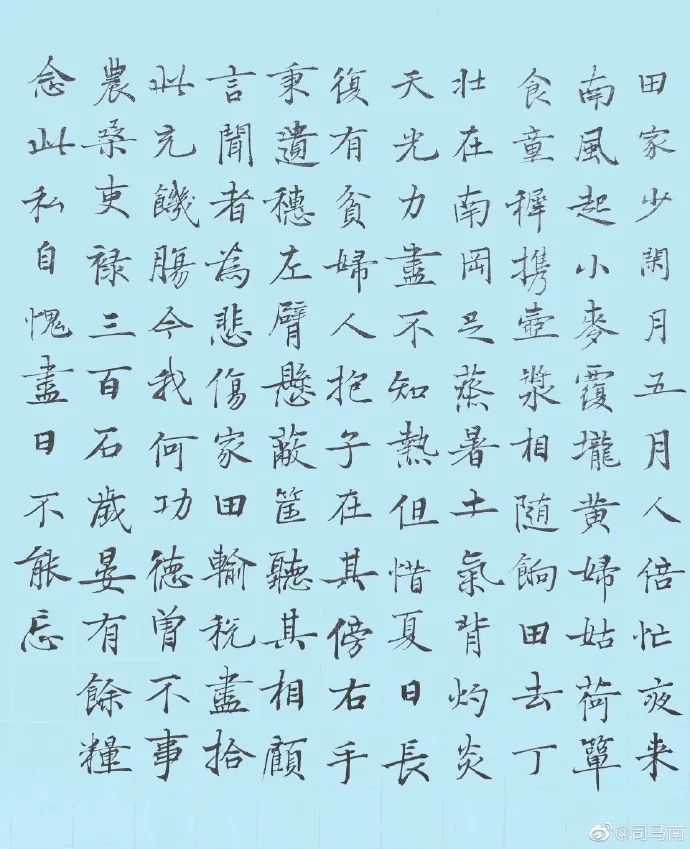 田家少閑月五月人倍忙夜来
南風起小麥覆壠黄婦姑荷簞
食童穉携壺漿相随餉田去丁
壮在南岡足蒸暑土氣背灼炎
天光力盡不知熱但惜夏日長
復有貧婦人抱子在其傍右手
秉遺穗左臂懸蔽筐聽其相顧
言聞者為悲傷家田輸税盡拾
此充饑腸今我何功德曾不事
農桑吏禄三百石歲晏有餘糧
念此私自愧盡日不能忘
@司马南